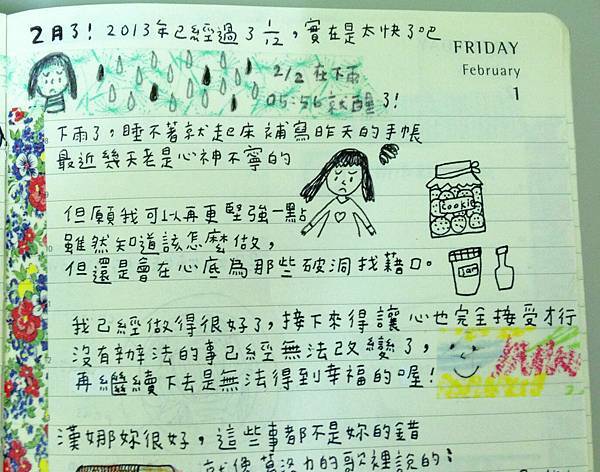 2月了! 2013年已經過了1/12,實在是太快了吧
FRIDAY
February
1
2/2 在下雨
05:56就醒了!
下雨了,睡不著就起床補寫昨天的手帳
最近幾天老是心神不寧的
Cookie
但願我可以再更堅強一點
雖然知道該怎麼做,
但還是會在心底為那些破洞找藉口。
Jam
我已經做得很好了,接下來得讓心也完全接受才行
沒有辦法的事已經無法改變了,
再繼續下去是無法得到幸福的喔!
漢娜妳很好,這些事都不是妳的錯
就像 力的歌裡說的: